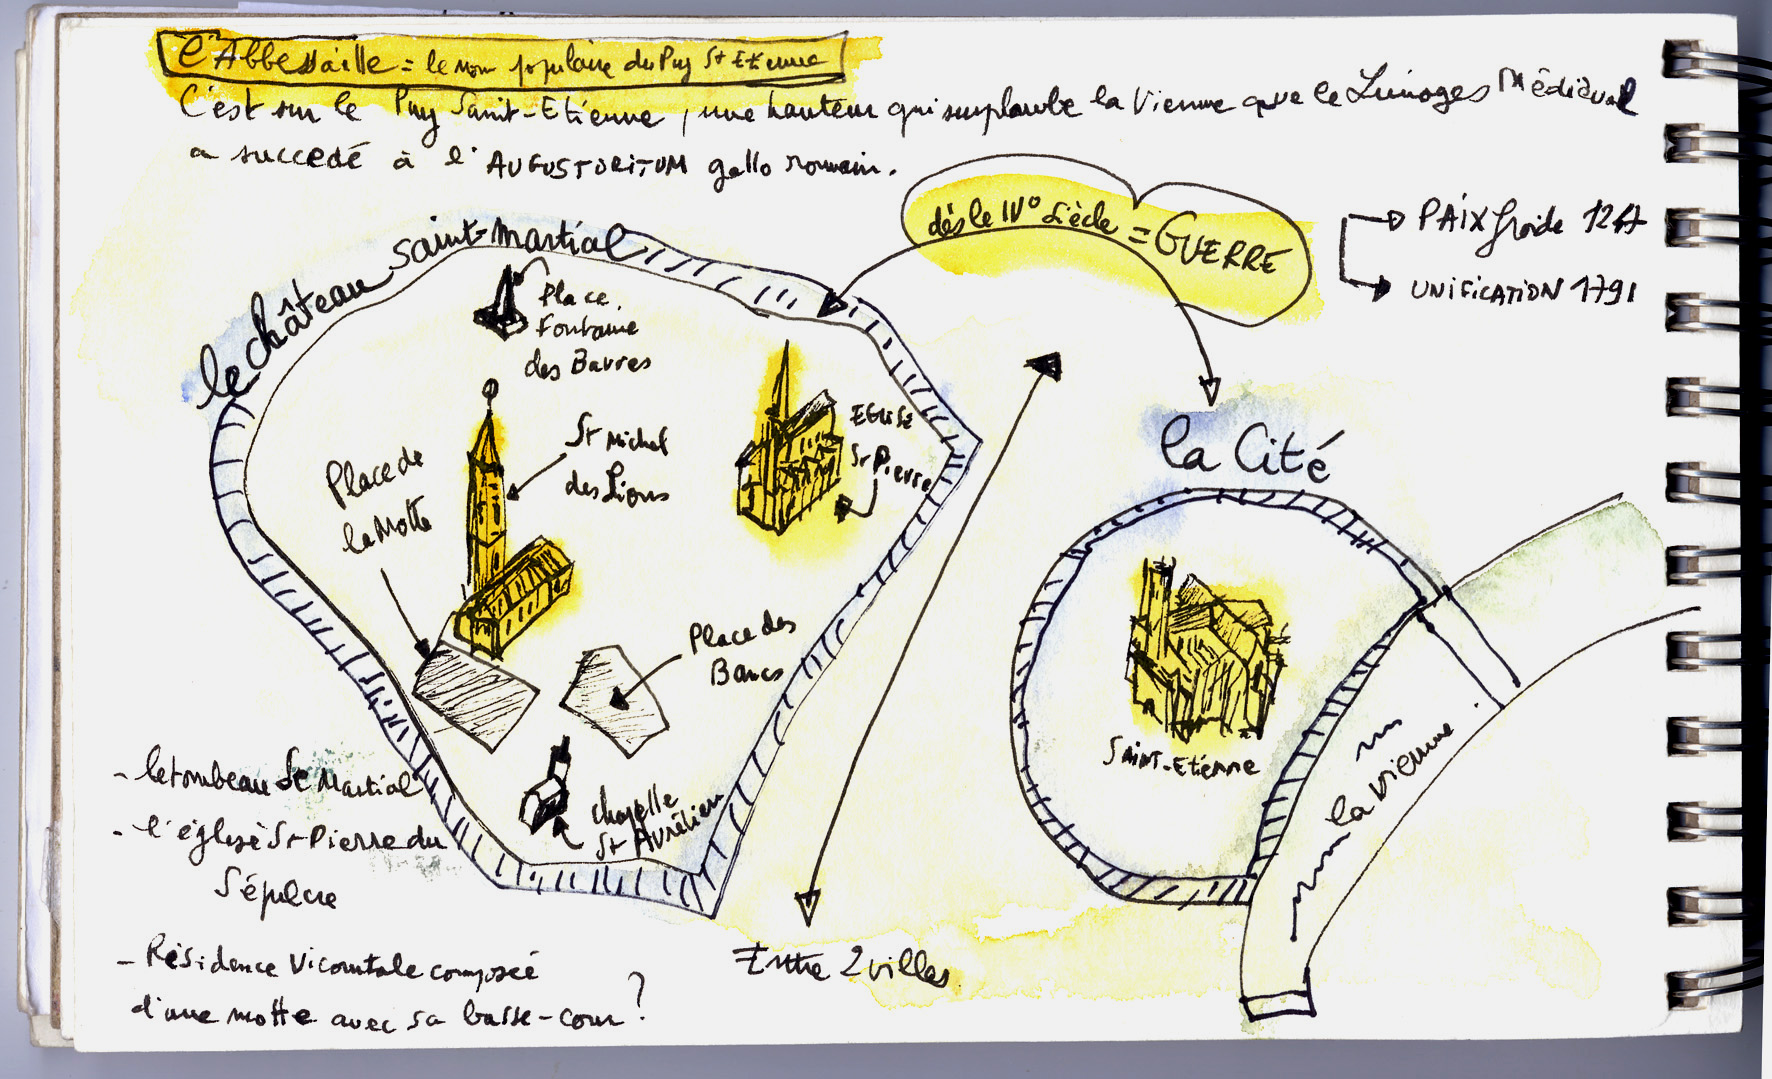 l'Abbessaille = le nom populaire du Puy St Etienne
C'est sur le Puy Saint-Etienne, une hauteur qui surplombe la Vienne que le Limoges Médiéval
a succedé à l'AUGUSTORITUM gallo romain.
dès le IV° Siècle = GUERRE
PAIX froide 1247
UNIFICATION 1791
le château saint-Martial
Place
Fontaine
des Barres
St Michel
des Lions
EGLISE
St Pierre
Place de
la Motte
la Cité
Place des
Bancs
SAINT-Etienne
la Vienne
- le tombeau St Martial
- l'église St Pierre du
Sépulcre
chapelle
St Aurélien
- Résidence Vicomtale composée
d'une motte avec sa basse-cour ?
Entre 2 villes